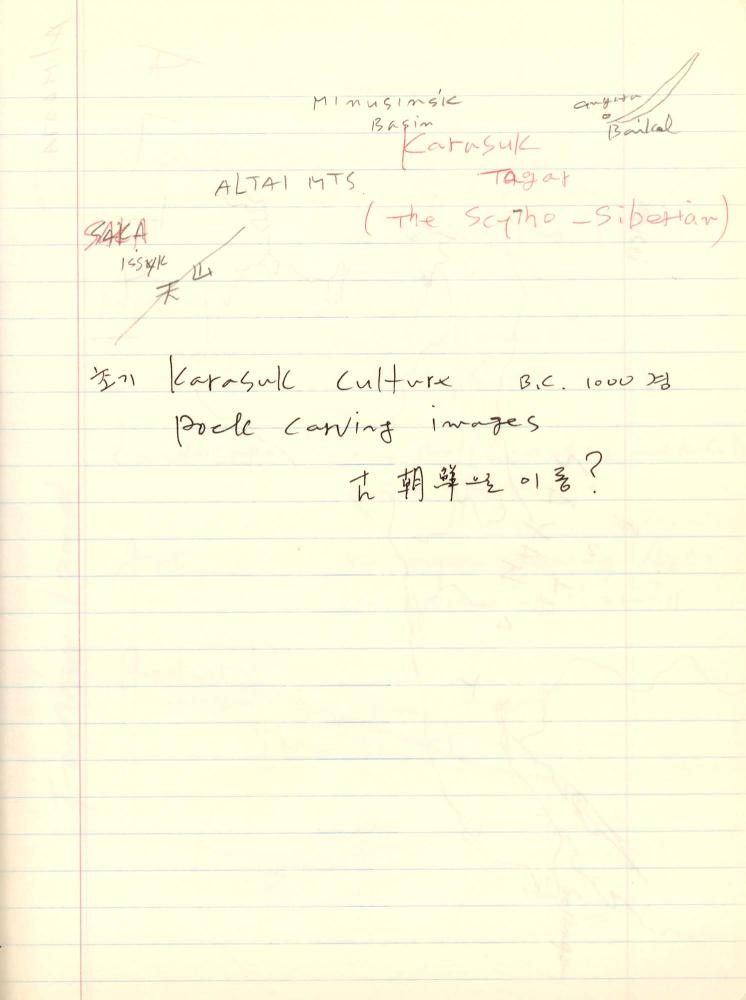 Minusinsk
Basin
angara
Baikal
Karasuk
Tagar
ALTAI MTS.
(The Scytho-Siberian)
SAKA
ISSYK
天山
초기 Karasuk Culture B.C. 1000 경
Rock carving images
古朝鮮으로 이동?